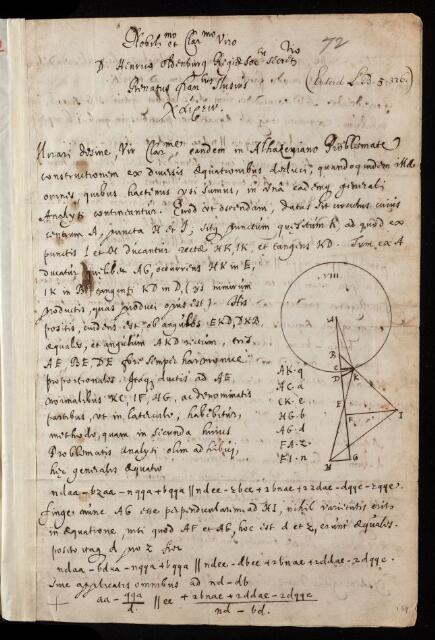 Nobili^mo et Clar^mo Viro 72
D. Henrico Oldenburg Regiæ Soc^tis Secret^rio
Renatus Fran^cus Slusius (Entred L.B. 5. 326.)
Χαίρειν.
Mirari desine, Vir Clar^me, eandem in Alhazeniano Problemate
constructionem ex diversis æquationibus deduci, quandoquidem illæ
omnes, quibus hactenus usi sumus, in una eademq generali
Analysi contineantur. Quod ut ostendam, datus sit circulus cuius
centrum A, puncta H et I; sitq punctum quæsitum K, ad quod ex
punctis I et H ducantur rectæ HK, IK, et tangens KD. Tum ex A
ducatur quælibet AG, occurrens HK in E,
IK in B, tangenti KD in D, (ijs nimirum
productis, quas produci opus est). His
positis, evidens est ob angulos EKD, DKB
æquales, et angulum AKD rectum, tres
AE, BE, DE fore semper harmonice
proportionales. Itaq ductis ad AE,
normalibus KC, IF, HG, ac denominatis
partibus, ut in laterculo, habebitur,
methodo, quam in secunda huius
Problematis analysi olim adhibui,
hæc generalis æquatio
VIII.
A
B
C
D
K
E
F
I
H
G
AK. q
AC. a
CK. e
HG. b
AG. d
FA. z.
FI. n
ndaa - bzaa - nqqa + bqqa || ndee - zbee + 2bnae + 2zdae - dqqe - zqqe.
Finge nunc AG esse perpendicularem ad HI, nihil varietatis erit
in æquatione, nisi quod AF et AG, hoc est d et z, erunt æquales.
posito itaq d pro z fiet
ndaa - bdaa - nqqa + bqqa || ndee - dbee + 2bnae + 2ddae - 2dqqe.
sive applicatis omnibus ad nd - db
aa - qqa/d. || ee + 2bnae + 2ddae - 2dqqe / nd - bd.